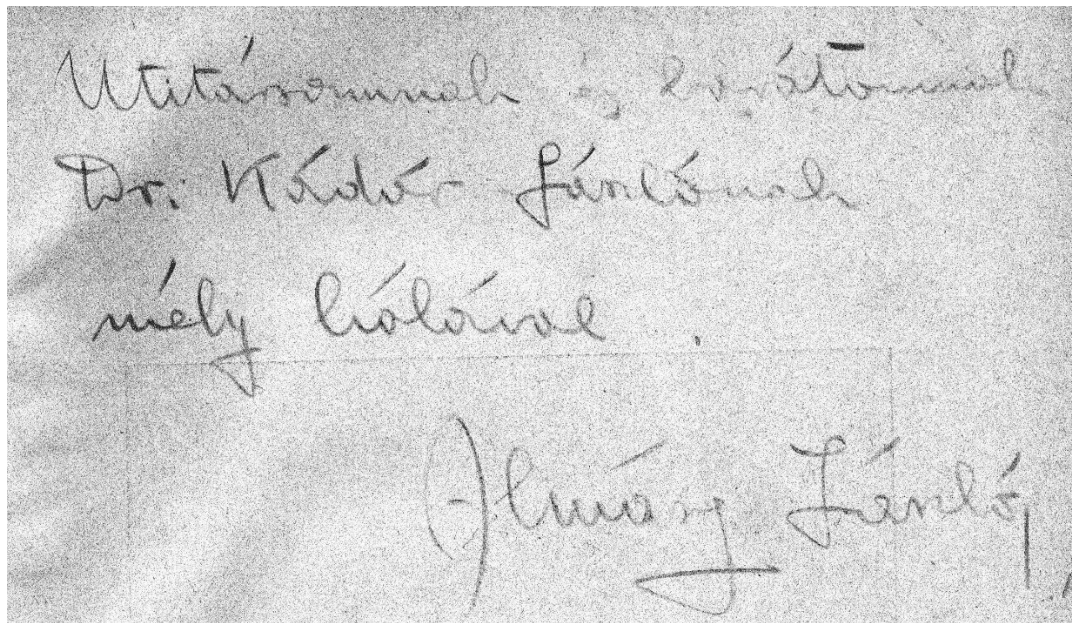 Utitársomnak és barátomnak
Dr. Kádár Lászlónak
mély hálával.
Almásy László